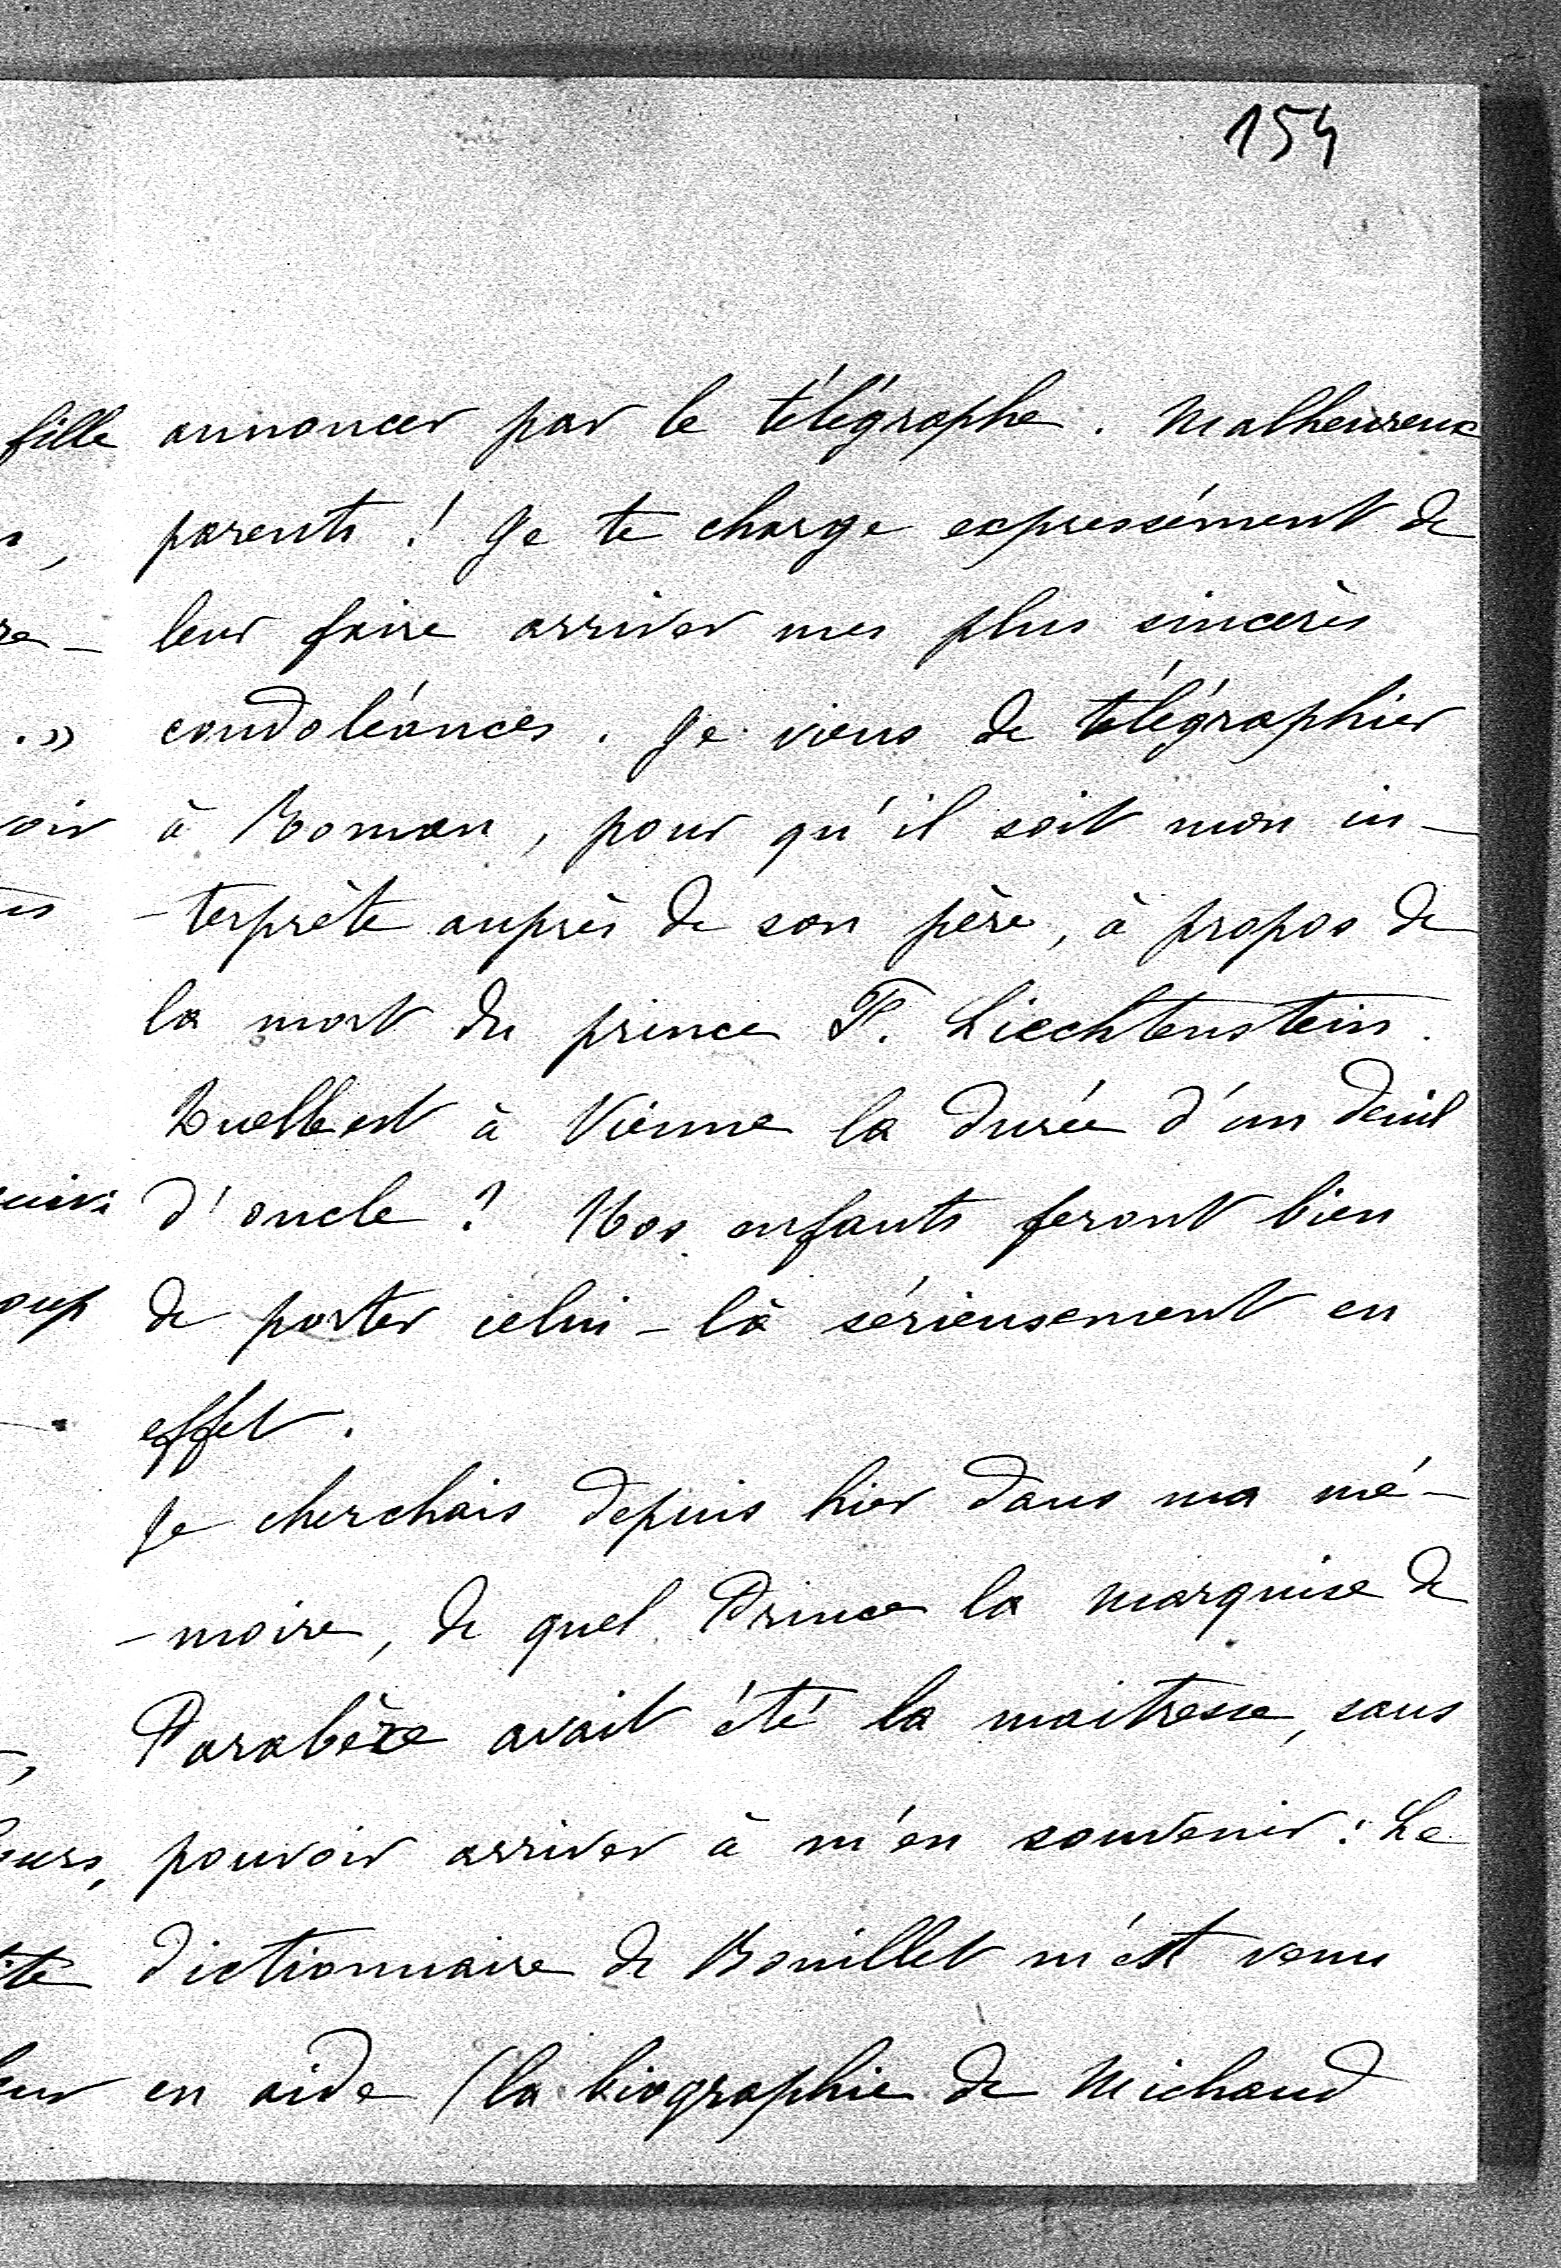 154
fille annoncer par le télégraphe. Malheureux
parents ! Je te charge expressément de
leur faire arriver mes plus sincères
condoléances. Je viens de télégraphier
à Roman, pour qu'il soit mon in-
-terprète auprès de son père, à propos de
la mort du prince F. Liechtenstein.
Quelle est à Vienne la durée d'un deuil
d'oncle ? Nos enfants feront bien
de porter celui-là sérieusement en
effet.
Je cherchais depuis hier dans ma mé-
-moire, de quel Prince la marquise de
Parabère avait été la maitresse, sans
pouvoir arriver à m'en souvenir : Le
dictionnaire de Bouillet m'est venu
en aide (la biographie de Michaud